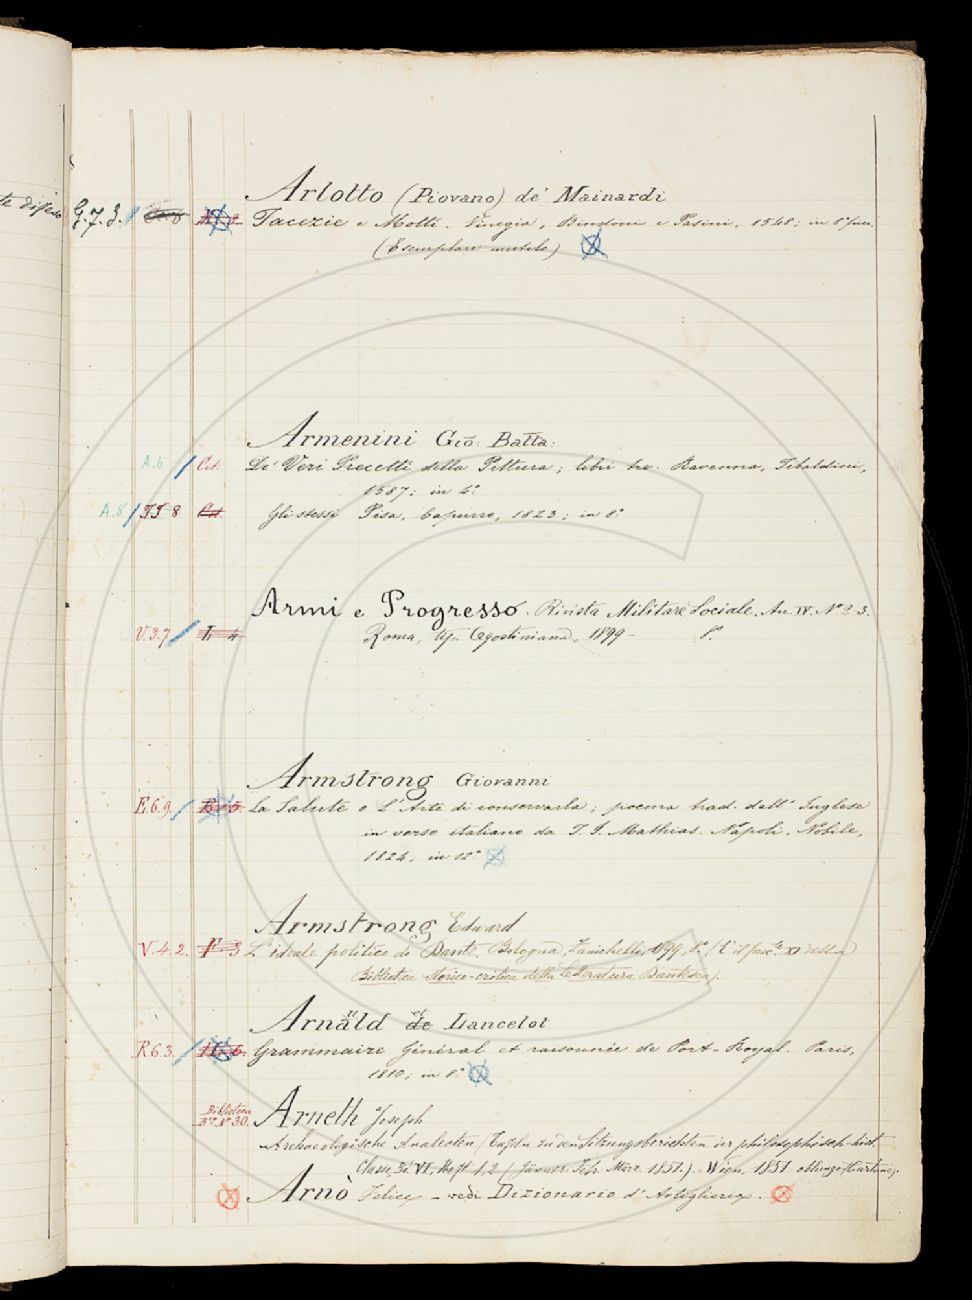 Arlotto (Piovano) de' Mainardi
G.7.3. Facezie e Motti. Vinegia, Bindoni e Pasini, 1548; in 8° fig.
(Esemplare mutilo)
Armenini Gio: Batta:
A.6 Cat. De' Veri Precetti della Pittura; libri tre. Ravenna, Tebaldini,
1587; in 4°
A.8 TT 8 Cat. Gli stessi Pisa, Capurro, 1823; in 8°
Armi e Progresso. Rivista Militare Sociale. An. IV. N° 2-3.
V.3.7 L 4 Roma, Tip. Agostiniana, 1899 - 8°
Armstrong Giovanni
E.6.9 La Salute o L'Arte di conservarla; poema trad. dall' Inglese
in verso italiano da T. J. Mathias. Napoli, Nobile,
1824, in 12°
Armstrong Edward
V.4.2. F 3 L'ideale politico di Dante. Bologna, Zanichelli, 1899, 8° (È il fasc.lo XI della
Biblioteca storico-critica della Letteratura Dantesca).
Arnauld de Lancelot
R.6.3. Grammaire Général et raisonnée de Port-Royal. Paris,
1810; in 8°
Arneth Joseph
Biblioteca
N° 30.
Archaeologische Analecten (Tafeln zu den Sitzungsberichten der philosophisch-hist.
Classe, Bd VI, Heft 1, 2 (Jänner. Feb. März. 1851.). Wien, 1851
Arnò Felice - vedi Dizionario d'Artiglieria.